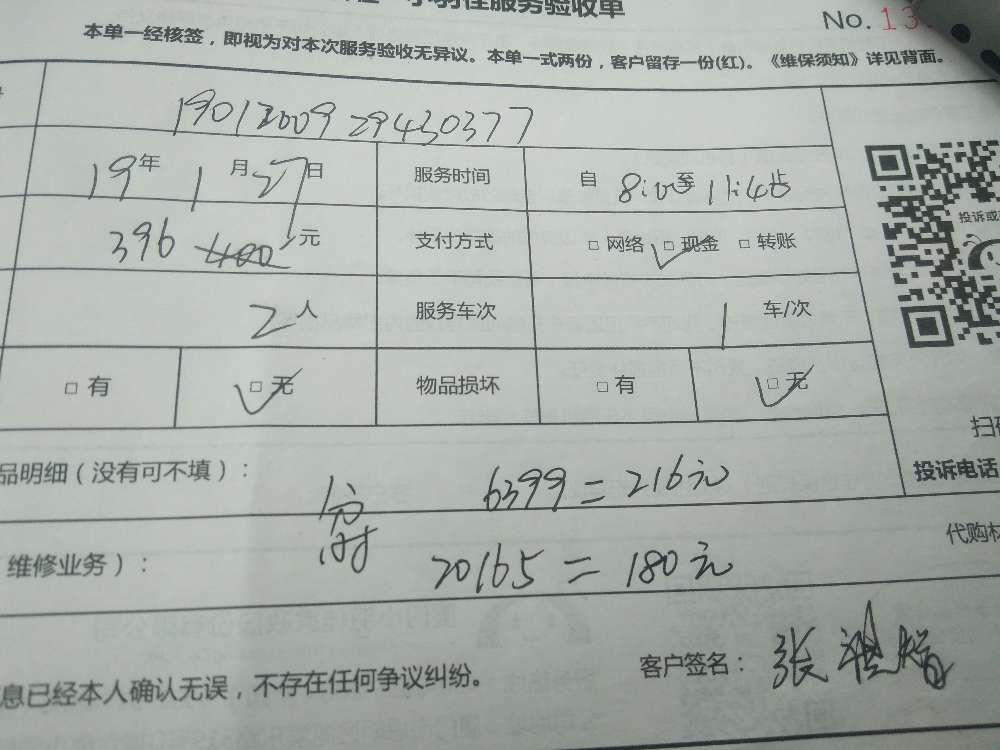 服务验收单
No. 13
本单一经核签，即视为对本次服务验收无异议。本单一式两份，客户留存一份(红)。《维保须知》详见背面。
19012009 29430377
19年 1月27日 服务时间 自 8:00至 11:45
396 400 元 支付方式 □ 网络 □ 现金 □ 转账
投诉或
2人 服务车次 1 车/次
□ 有 □ 无 物品损坏 □ 有 □ 无
扫
品明细（没有可不填）： 6399 = 216元
投诉电话
维修业务）： 20165 = 180元
代购
息已经本人确认无误，不存在任何争议纠纷。
客户签名： 张